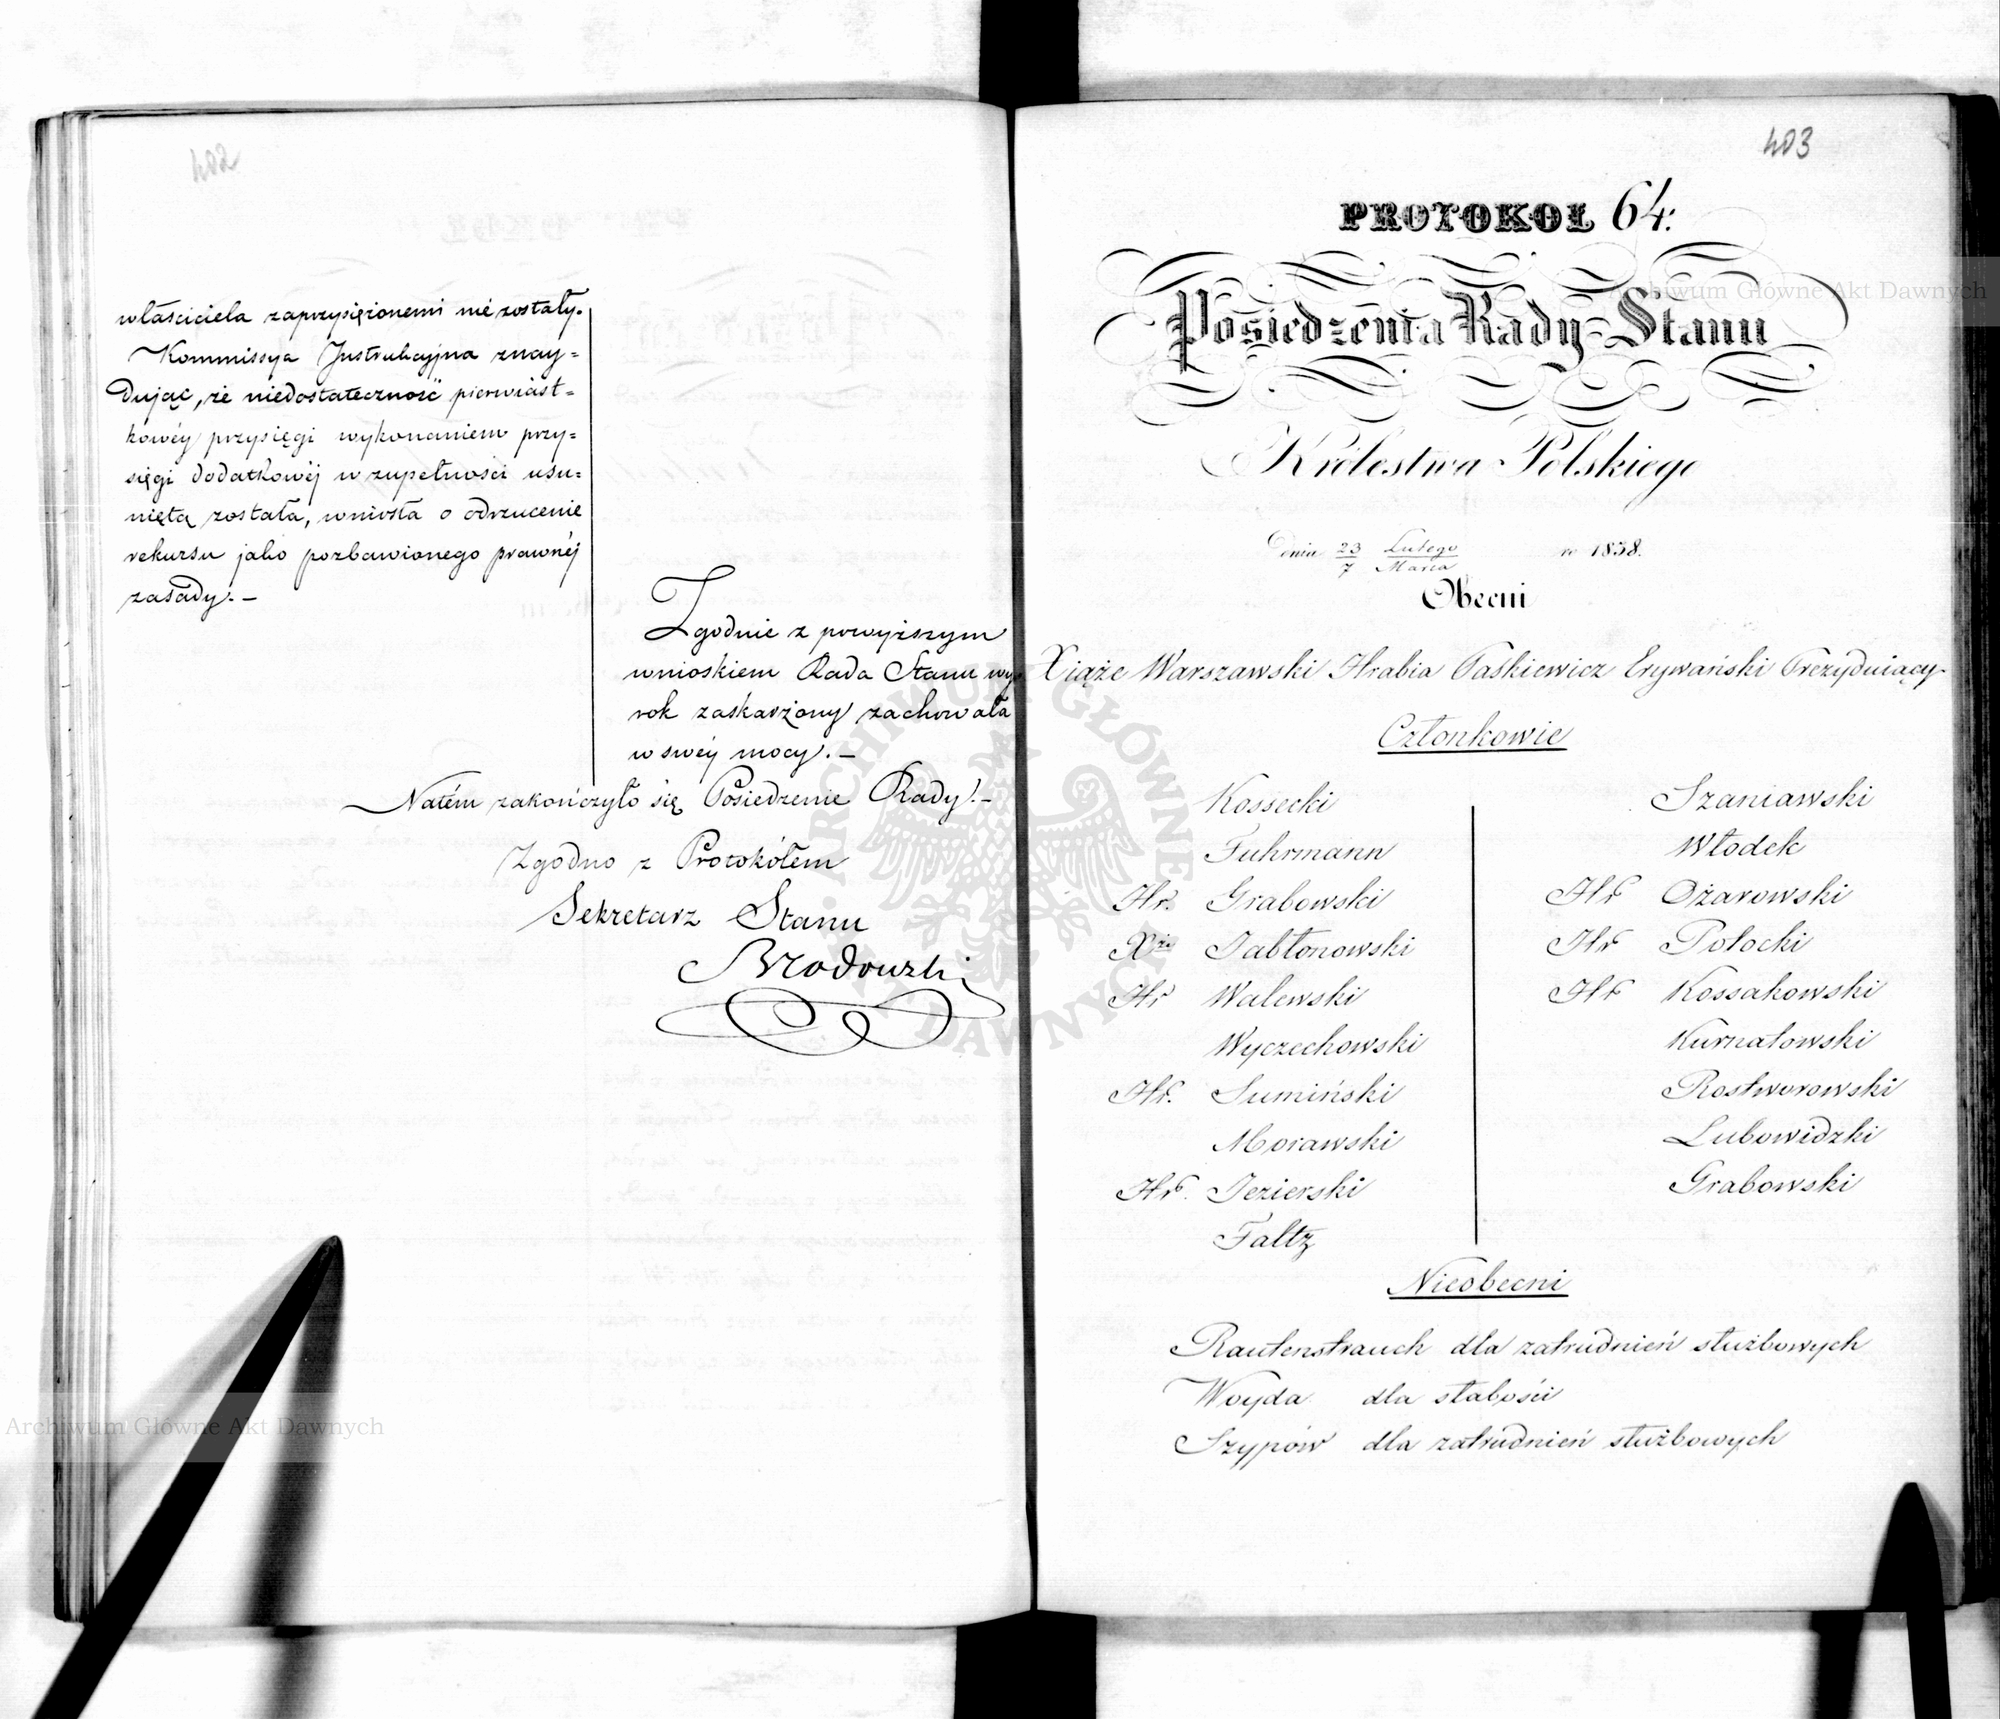 402
właściciela zaprzysiężonemi nie zostały.
Kommissya Instrukcyjna znay=
dując, że niedostateczność pierwiast=
kowéy przysięgi wykonaniem przy=
sięgi dodatkowéj w zupełności usu=
niętą została, wniosła o odrzucenie
rekursu jako pozbawionego prawnéj
zasady. —
Zgodnie z powyższym
wnioskiem Rada Stanu wy=
rok zaskarżony zachowała
w swéy mocy. —
Natém zakończyło się Posiedzenie Rady. —
Zgodno z Protokółem
Sekretarz Stanu
Brodowski
403
PROTOKOŁ 64.
Posiedzenia Rady Stanu
Królestwa Polskiego
Dnia 23 Lutego / 7 Marca r. 1838.
Obecni
Xiąże Warszawski Hrabia Paskiewicz Erywański Prezyduiący
Członkowie
Kossecki
Fuhrmann
Hr. Grabowski
Xże Jabłonowski
Hr Walewski
Wyczechowski
Hr. Sumiński
Morawski
Hr. Jezierski
Faltz
Szaniawski
Włodek
Hr Ożarowski
Hr Potocki
Hr Kossakowski
Kurnatowski
Rostworowski
Lubowidzki
Grabowski
Nieobecni
Rautenstrauch dla zatrudnień służbowych
Woyda dla słabości
Szypow dla zatrudnień służbowych
Archiwum Główne Akt Dawnych
Archiwum Główne Akt Dawnych
ARCHIWUM GŁÓWNE AKT DAWNYCH